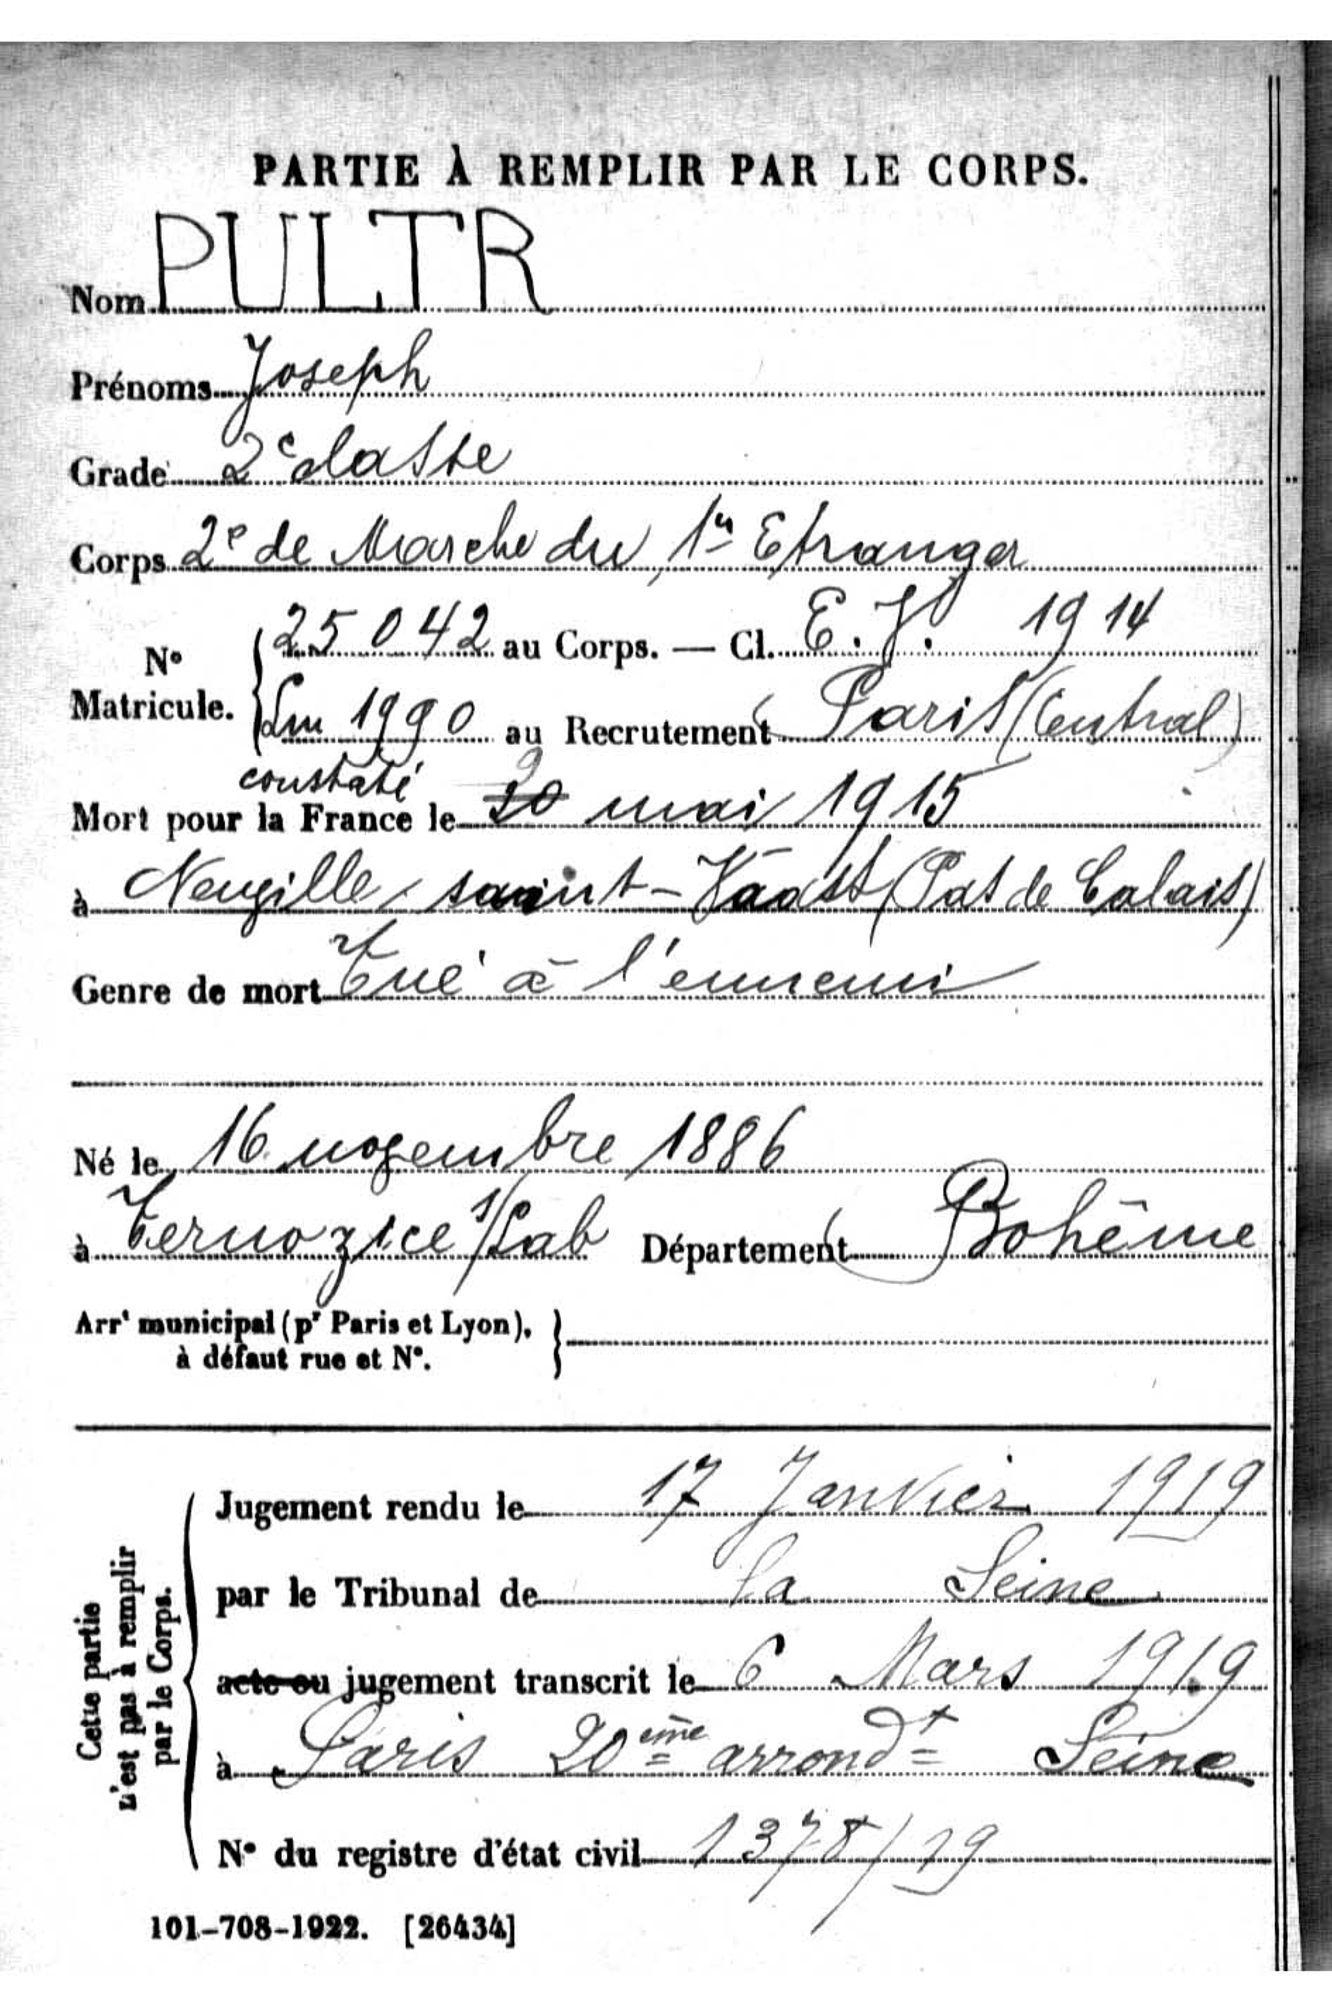 PARTIE À REMPLIR PAR LE CORPS.
Nom PULTR
Prénoms Joseph
Grade 2e classe
Corps 2e de Marche du 1er Etranger
No Matricule. { 25 042 au Corps. — Cl. E. V. 1914
Lm 1990 au Recrutement Paris (Central)
constaté 9
Mort pour la France le 20 mai 1915
à Neuville saint-Váast (Pas de Calais)
Genre de mort Tué à l'ennemi
Né le 16 novembre 1886
à Ternozice s/Lab Département Bohême
Arrt municipal (pr Paris et Lyon), }
à défaut rue et No.
Cette partie
n'est pas à remplir
par le Corps.
Jugement rendu le 17 Janvier 1919
par le Tribunal de la Seine
acte ou jugement transcrit le 6 Mars 1919
à Paris 20ème arrondt Seine
No du registre d'état civil 1378/19
101-708-1922. [26434]